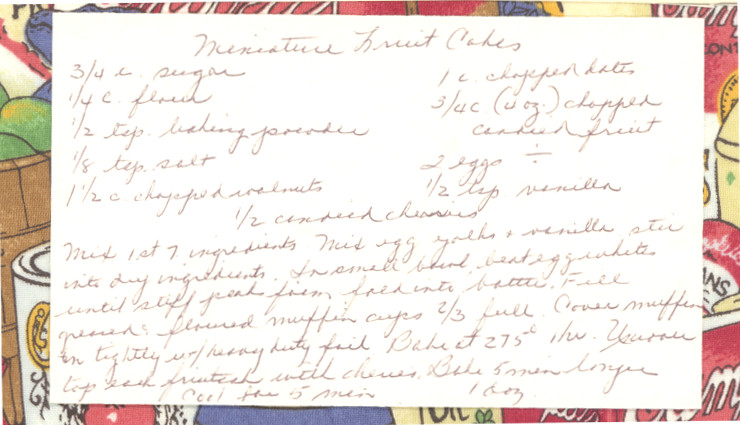 Meniature Fruit Cakes
3/4 c. sugar
1/4 c. flour
1/2 tsp. baking powder
1/8 tsp. salt
1 1/2 c. chopped walnuts
1 c. chopped dates
3/4 c (4 oz.) chopped
candied fruit
2 eggs ÷
1/2 tsp vanilla
1/2 candied cherries
Mix 1st 7 ingredients Mix egg yolks + vanilla stir
into dry ingredients. In small bowl, beat egg whites
until stiff peaks form fold into batter. Fill
greased & floured muffin cups 2/3 full. Cover muffin
tin tightly w/heavy duty foil Bake at 275° 1 hr. Uncover
top each fruitcake with cherries. Bake 5 min longer
Cool for 5 min 1 doz.
OIL